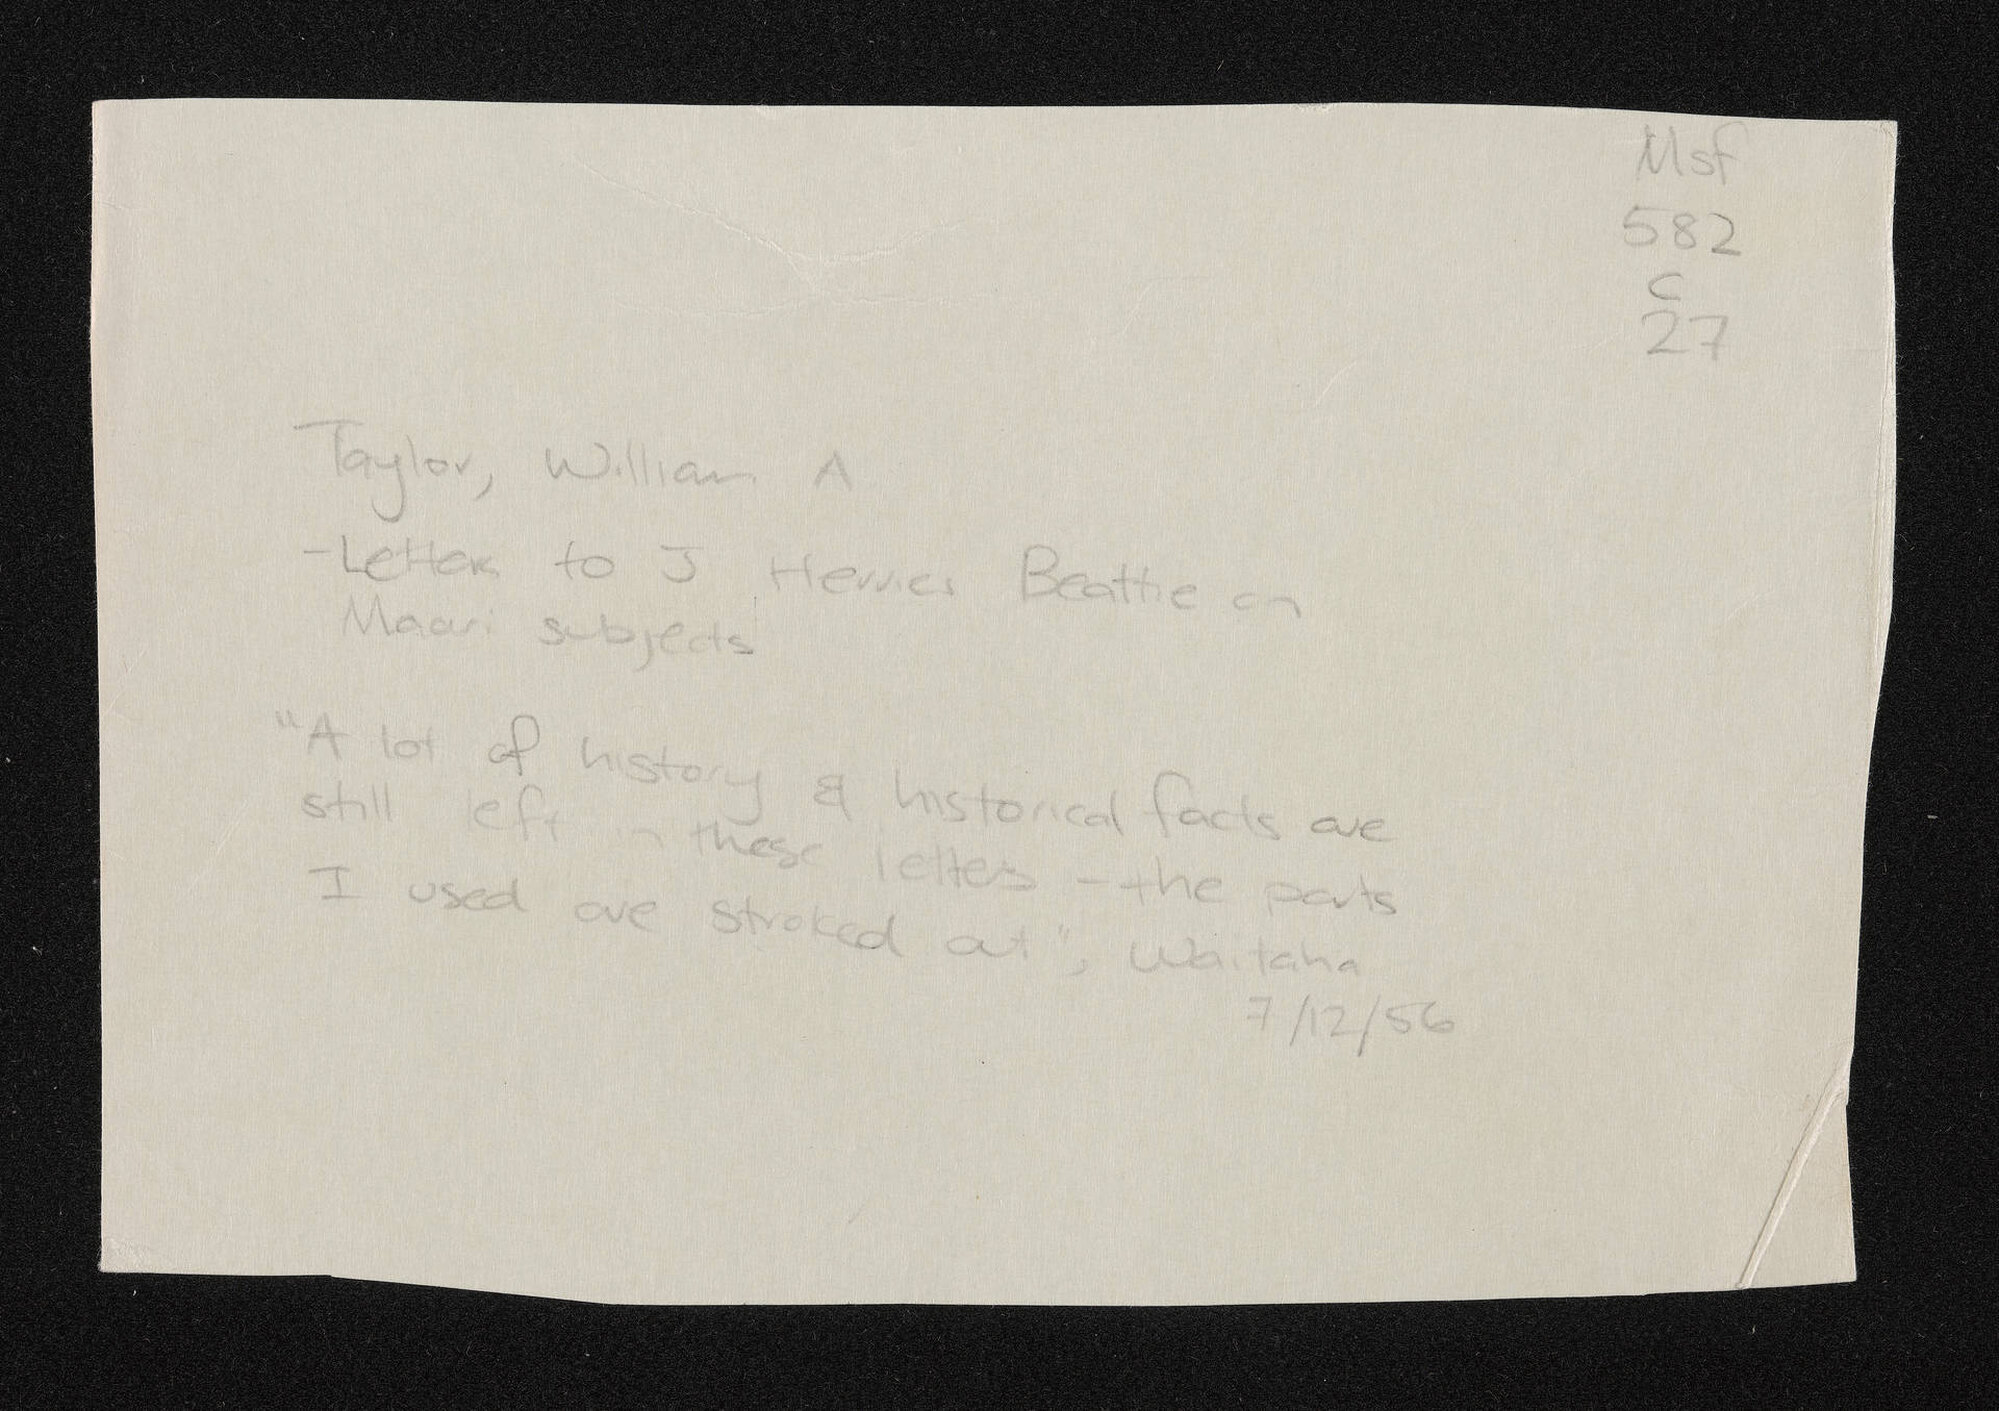 Msf
582
C
27
Taylor, William A
- Letters to J Herries Beattie on
Maori subjects
"A lot of history & historical facts are
still left in these letters - the parts
I used are stroked out", Waitaha
7/12/56